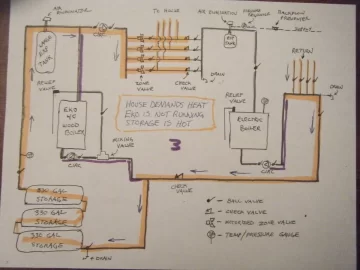 AIR ELIMINATOR
TO HOUSE
AIR ELIMINATOR
PRESSURE REDUCER
BACKFLOW PREVENTER
LARGE EXP TANK
EXP TANK
SUPPLY
RETURN
ZONE VALVE
CHECK VALVE
DRAIN
DRAIN
RELIEF VALVE
RELIEF VALVE
HOUSE DEMANDS HEAT
EKO IS NOT RUNNING
STORAGE IS HOT
EKO
40
WOOD
BOILER
ELECTRIC
BOILER
3
MIXING VALVE
CIRC
CIRC
CHECK VALVE
330 GAL
STORAGE
330 GAL
STORAGE
330 GAL
STORAGE
DRAIN
- BALL VALVE
- CHECK VALVE
- MOTORIZED ZONE VALVE
- TEMP/PRESSURE GAUGE